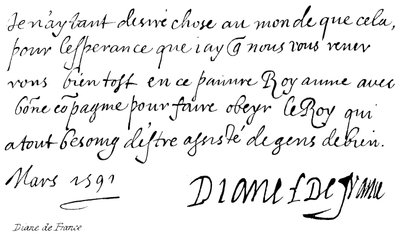 Je n'ay tant desiré chose au monde que cela,
pour l'esperance que i'ay q̃ nous vous reuer
rons bien tost en ce pauure Royaume auec
bõne cõpagnie pour faire obeyr le Roy qui
a tout besoing d'estre assisté de gens de bien.
Mars 1591 DIANE L DE france
Diane de France